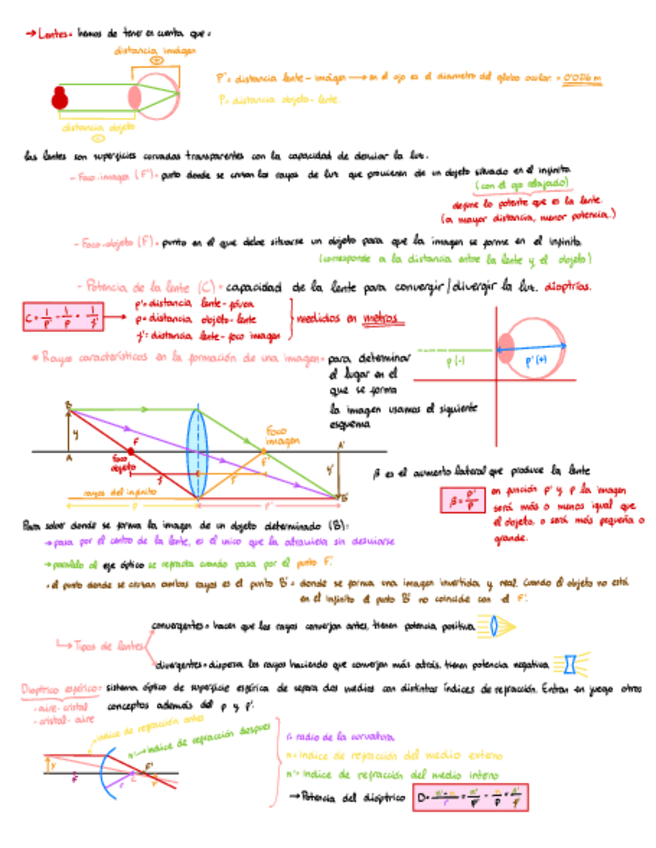 → Lentes= hemos de tener en cuenta que:
distancia imágen
P'= distancia lente-imágen → en el ojo es el diametro del globo ocular = 0'026 m
P= distancia objeto-lente.
distancia objeto
las lentes son superficies curvadas transparentes con la capacidad de desviar la luz.
- Foco imagen (F')= punto donde se cruzan los rayos de luz que provienen de un objeto situado en el infinito.
(con el ojo relajado)
define lo potente que es la lente.
(a mayor distancia, menor potencia.)
- Foco-objeto (F)= punto en el que debe situarse un objeto para que la imagen se forme en el infinito.
(corresponde a la distancia entre la lente y el objeto)
- Potencia de la lente (C)= capacidad de la lente para converger/divergir la luz. dioptrías.
C = 1/p' - 1/p = 1/f'
p'= distancia lente-fóvea
p= distancia objeto-lente
f'= distancia lente-foco imagen
medidos en metros
p(-)
p'(+)
* Rayos característicos en la formación de una imagen= para determinar
el lugar en el
que se forma
la imagen usamos el siguiente
esquema
B
y
A
F
Foco
objeto
Foco
imagen
F'
f
f'
A'
y'
B'
rayos del infinito
p
p'
β es el aumento lateral que produce la lente
β = p'/p
en función p' y p la imagen
será más o menos igual que
el objeto, o será más pequeña o
grande.
Para saber donde se forma la imagen de un objeto determinado (B):
→ pasa por el centro de la lente, es el unico que la atraviesa sin desviarse
→ paralelo al eje óptico se refracta cuando pasa por el punto F'.
• el punto donde se cruzan ambos rayos es el punto B'= donde se forma una imagen invertida y real. Cuando el objeto no está
en el infinito el punto B' no coincide con el F'.
Tipos de lentes
convergentes= hacen que los rayos converjan antes, tienen potencia positiva.
divergentes= dispersa los rayos haciendo que converjan más atrás, tienen potencia negativa.
Dioptrico esférico= sistema óptico de superficie esférica de separa dos medios con distintos índices de refracción. Entran en juego otros
- aire-cristal
conceptos además del p y p'.
- cristal-aire
índice de refracción antes
n'→ índice de refracción despues
r= radio de la curvatura
n= índice de refracción del medio externo
n'= índice de refracción del medio interno
→ Potencia del dióptrico